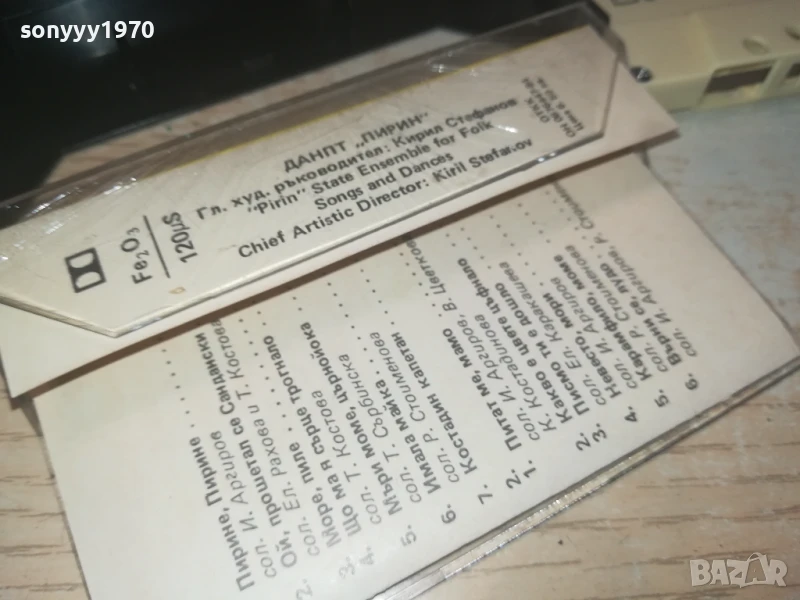 sonyyy1970
ДАНПТ „ПИРИН"
Гл. худ. ръководител: Кирил Стефанов
"Pirin" State Ensemble for Folk
Songs and Dances
Chief Artistic Director: Kiril Stefanov
Fe₂O₃
120µS
ОТКК
Пирине, Пирине
сол. И. Аргиров
2. Ой, прошетал се Сандански
сол. Ел. Рахова и Т. Костова
3. Море, пиле
4. Що ма я сърце трогнало
сол. Т. Костова
5. Мъри моме, църноока
сол. Т. Сърбинска
6. Имала майка
сол. Р. Стоименова
7. Костадин капетан
2. 1. Питат ме, мамо
сол. И. Аргиров, В. Цветков
К. Костадинова
2. Какво е цвете цъфнало
сол. Ел. Каракашева
3. Писмо ти е дошло
сол. И. Аргиров
4. Невесто мори
сол. Р. Стоименова
5. Карамфило, моме
6. Върни се, лудо
сол. И. Аргиров, Р. Стоименова
BAZAR